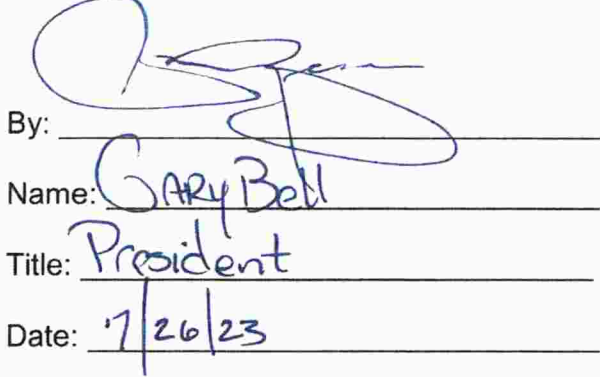 By:
Name: Gary Bell
Title: President
Date: 7/26/23